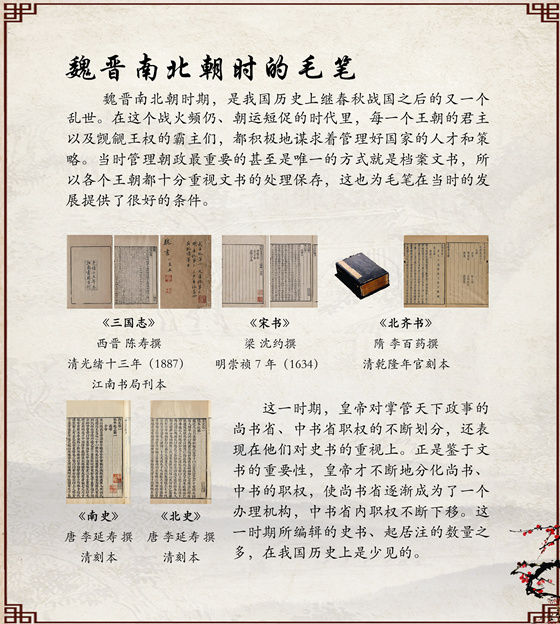 魏晋南北朝时的毛笔
魏晋南北朝时期，是我国历史上继春秋战国之后的又一个
乱世。在这个战火频仍、朝运短促的时代里，每一个王朝的君主
以及觊觎王权的霸主们，都积极地谋求着管理好国家的人才和策
略。当时管理朝政最重要的甚至是唯一的方式就是档案文书，所
以各个王朝都十分重视文书的处理保存，这也为毛笔在当时的发
展提供了很好的条件。
《三国志》
西晋 陈寿撰
清光绪十三年（1887）
江南书局刊本
《宋书》
梁 沈约撰
明崇祯 7 年（1634）
《北齐书》
隋 李百药撰
清乾隆年官刻本
《南史》
唐 李延寿 撰
清刻本
《北史》
唐 李延寿 撰
清刻本
这一时期，皇帝对掌管天下政事的
尚书省、中书省职权的不断划分，还表
现在他们对史书的重视上。正是鉴于文
书的重要性，皇帝才不断地分化尚书、
中书的职权，使尚书省逐渐成为了一个
办理机构，中书省内职权不断下移。这
一时期所编辑的史书、起居注的数量之
多，在我国历史上是少见的。